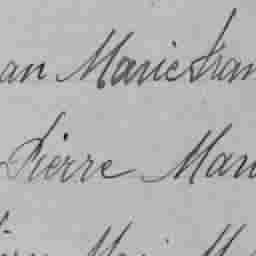 an Marie Fran
Pierre Mari